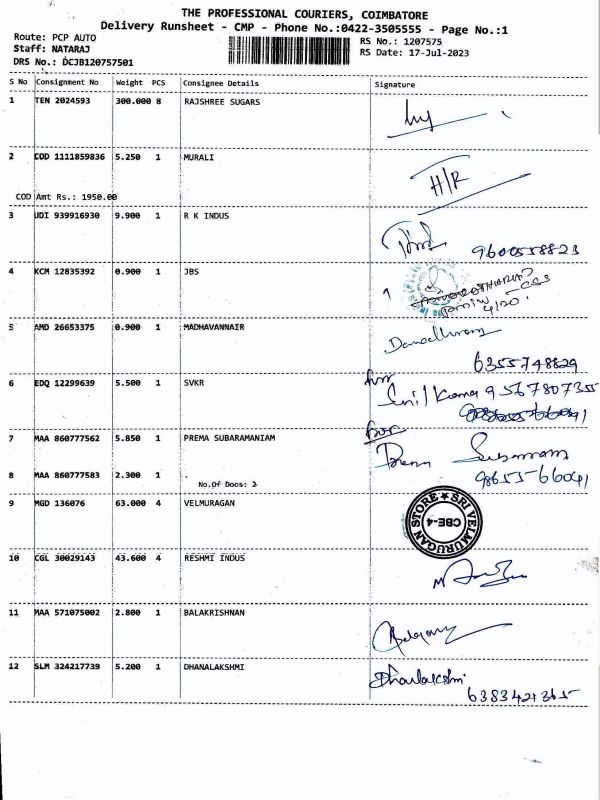 THE PROFESSIONAL COURIERS, COIMBATORE
Delivery Runsheet - CMP - Phone No.:0422-3505555 - Page No.:1
Route: PCP AUTO
RS No.: 1207575
Staff: NATARAJ
RS Date: 17-Jul-2023
DRS No.: DCJB120757501
S No Consignment No Weight PCS Consignee Details Signature
1 TEN 2024593 300.000 8 RAJSHREE SUGARS
2 COD 1111859836 5.250 1 MURALI
H/R
COD Amt Rs.: 1950.00
3 UDI 939916930 9.900 1 R K INDUS
9600558823
4 KCM 12835392 0.900 1 JBS
5 AMD 26653375 0.900 1 MADHAVANNAIR
6355748829
6 EDQ 12299639 5.500 1 SVKR
Sunil Kumar 9567807355
7 MAA 860777562 5.850 1 PREMA SUBARAMANIAM
for
Prema
8 MAA 860777583 2.300 1 .
98655-66041
No.Of Docs: 2
9 MGD 136076 63.000 4 VELMURAGAN
SRI VELMURUGAN STORE
CBE-4
10 CGL 30029143 43.600 4 RESHMI INDUS
11 MAA 571075002 2.800 1 BALAKRISHNAN
12 SLM 324217739 5.200 1 DHANALAKSHMI
Dhanalakshmi
6383421365